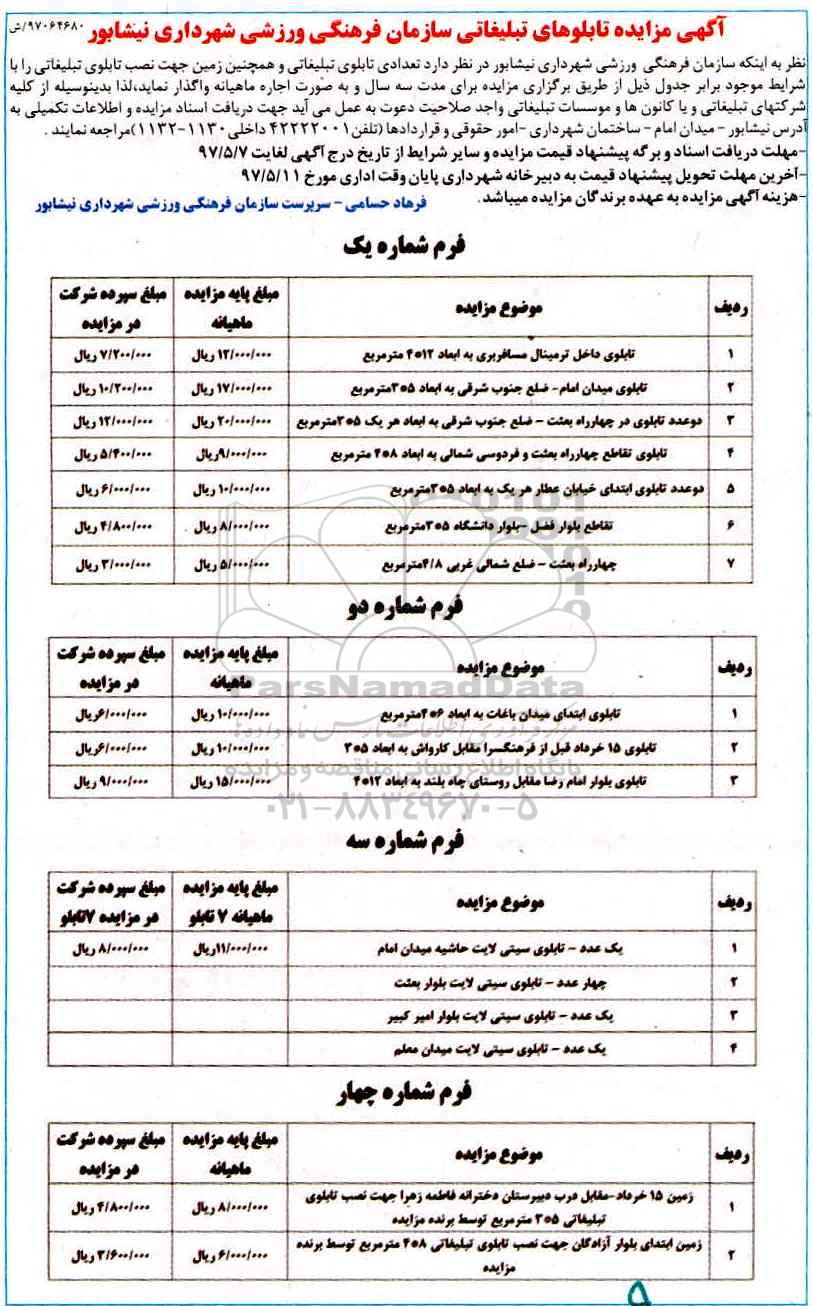 آگهی مزایده تابلوهای تبلیغاتی سازمان فرهنگی ورزشی شهرداری نیشابور
۹۷۰۶۴۶۸۰/ش
نظر به اینکه سازمان فرهنگی ورزشی شهرداری نیشابور در نظر دارد تعدادی تابلوی تبلیغاتی و همچنین زمین جهت نصب تابلوی تبلیغاتی را با
شرایط موجود برابر جدول ذیل از طریق برگزاری مزایده برای مدت سه سال و به صورت اجاره ماهیانه واگذار نماید،لذا بدینوسیله از کلیه
شرکتهای تبلیغاتی و یا کانون ها و موسسات تبلیغاتی واجد صلاحیت دعوت به عمل می آید جهت دریافت اسناد مزایده و اطلاعات تکمیلی به
آدرس نیشابور - میدان امام - ساختمان شهرداری -امور حقوقی و قراردادها (تلفن۴۲۲۲۲۰۰۱ داخلی۱۱۳۰-۱۱۳۲)مراجعه نمایند .
-مهلت دریافت اسناد و برگه پیشنهاد قیمت مزایده و سایر شرایط از تاریخ درج آگهی لغایت ۹۷/۵/۷
-آخرین مهلت تحویل پیشنهاد قیمت به دبیرخانه شهرداری پایان وقت اداری مورخ ۹۷/۵/۱۱
-هزینه آگهی مزایده به عهده برندگان مزایده میباشد.
فرهاد حسامی - سرپرست سازمان فرهنگی ورزشی شهرداری نیشابور
فرم شماره یک
ردیف موضوع مزایده مبلغ پایه مزایده ماهیانه مبلغ سپرده شرکت در مزایده
۱ تابلوی داخل ترمینال مسافربری به ابعاد ۱۲*۴ مترمربع ۱۲/۰۰۰/۰۰۰ ریال ۷/۲۰۰/۰۰۰ ریال
۲ تابلوی میدان امام- ضلع جنوب شرقی به ابعاد ۵*۳مترمربع ۱۷/۰۰۰/۰۰۰ ریال ۱۰/۲۰۰/۰۰۰ ریال
۳ دوعدد تابلوی در چهارراه بعثت - ضلع جنوب شرقی به ابعاد هر یک ۵*۳مترمربع ۲۰/۰۰۰/۰۰۰ ریال ۱۲/۰۰۰/۰۰۰ ریال
۴ تابلوی تقاطع چهارراه بعثت و فردوسی شمالی به ابعاد ۸*۴ مترمربع ۹/۰۰۰/۰۰۰ریال ۵/۴۰۰/۰۰۰ ریال
۵ دوعدد تابلوی ابتدای خیابان عطار هر یک به ابعاد ۵*۳مترمربع ۱۰/۰۰۰/۰۰۰ ریال ۶/۰۰۰/۰۰۰ ریال
۶ تقاطع بلوار فضل -بلوار دانشگاه ۵*۳مترمربع ۸/۰۰۰/۰۰۰ ریال ۴/۸۰۰/۰۰۰ ریال
۷ چهارراه بعثت - ضلع شمالی غربی ۴/۸مترمربع ۵/۰۰۰/۰۰۰ ریال ۳/۰۰۰/۰۰۰ ریال
فرم شماره دو
ردیف موضوع مزایده مبلغ پایه مزایده ماهیانه مبلغ سپرده شرکت در مزایده
۱ تابلوی ابتدای میدان باغات به ابعاد ۶*۴مترمربع ۱۰/۰۰۰/۰۰۰ ریال ۶/۰۰۰/۰۰۰ریال
۲ تابلوی ۱۵ خرداد قبل از فرهنگسرا مقابل کارواش به ابعاد ۵*۳ ۱۰/۰۰۰/۰۰۰ ریال ۶/۰۰۰/۰۰۰ریال
۳ تابلوی بلوار امام رضا مقابل روستای چاه بلند به ابعاد ۱۲*۴ ۱۵/۰۰۰/۰۰۰ ریال ۹/۰۰۰/۰۰۰ ریال
ParsNamadData
پایگاه اطلاع رسانی مناقصه و مزایده
۰۲۱-۸۸۳۴۹۶۷۰-۵
فرم شماره سه
ردیف موضوع مزایده مبلغ پایه مزایده ماهیانه ۷ تابلو مبلغ سپرده شرکت در مزایده ۷تابلو
۱ یک عدد - تابلوی سیتی لایت حاشیه میدان امام ۱۱/۰۰۰/۰۰۰ریال ۸/۰۰۰/۰۰۰ ریال
۲ چهار عدد - تابلوی سیتی لایت بلوار بعثت
۳ یک عدد - تابلوی سیتی لایت بلوار امیر کبیر
۴ یک عدد - تابلوی سیتی لایت میدان معلم
فرم شماره چهار
ردیف موضوع مزایده مبلغ پایه مزایده ماهیانه مبلغ سپرده شرکت در مزایده
۱ زمین ۱۵ خرداد-مقابل درب دبیرستان دخترانه فاطمه زهرا جهت نصب تابلوی
تبلیغاتی ۵*۳ مترمربع توسط برنده مزایده ۸/۰۰۰/۰۰۰ ریال ۴/۸۰۰/۰۰۰ ریال
۲ زمین ابتدای بلوار آزادگان جهت نصب تابلوی تبلیغاتی ۸*۴ مترمربع توسط برنده
مزایده ۶/۰۰۰/۰۰۰ ریال ۳/۶۰۰/۰۰۰ ریال
۵